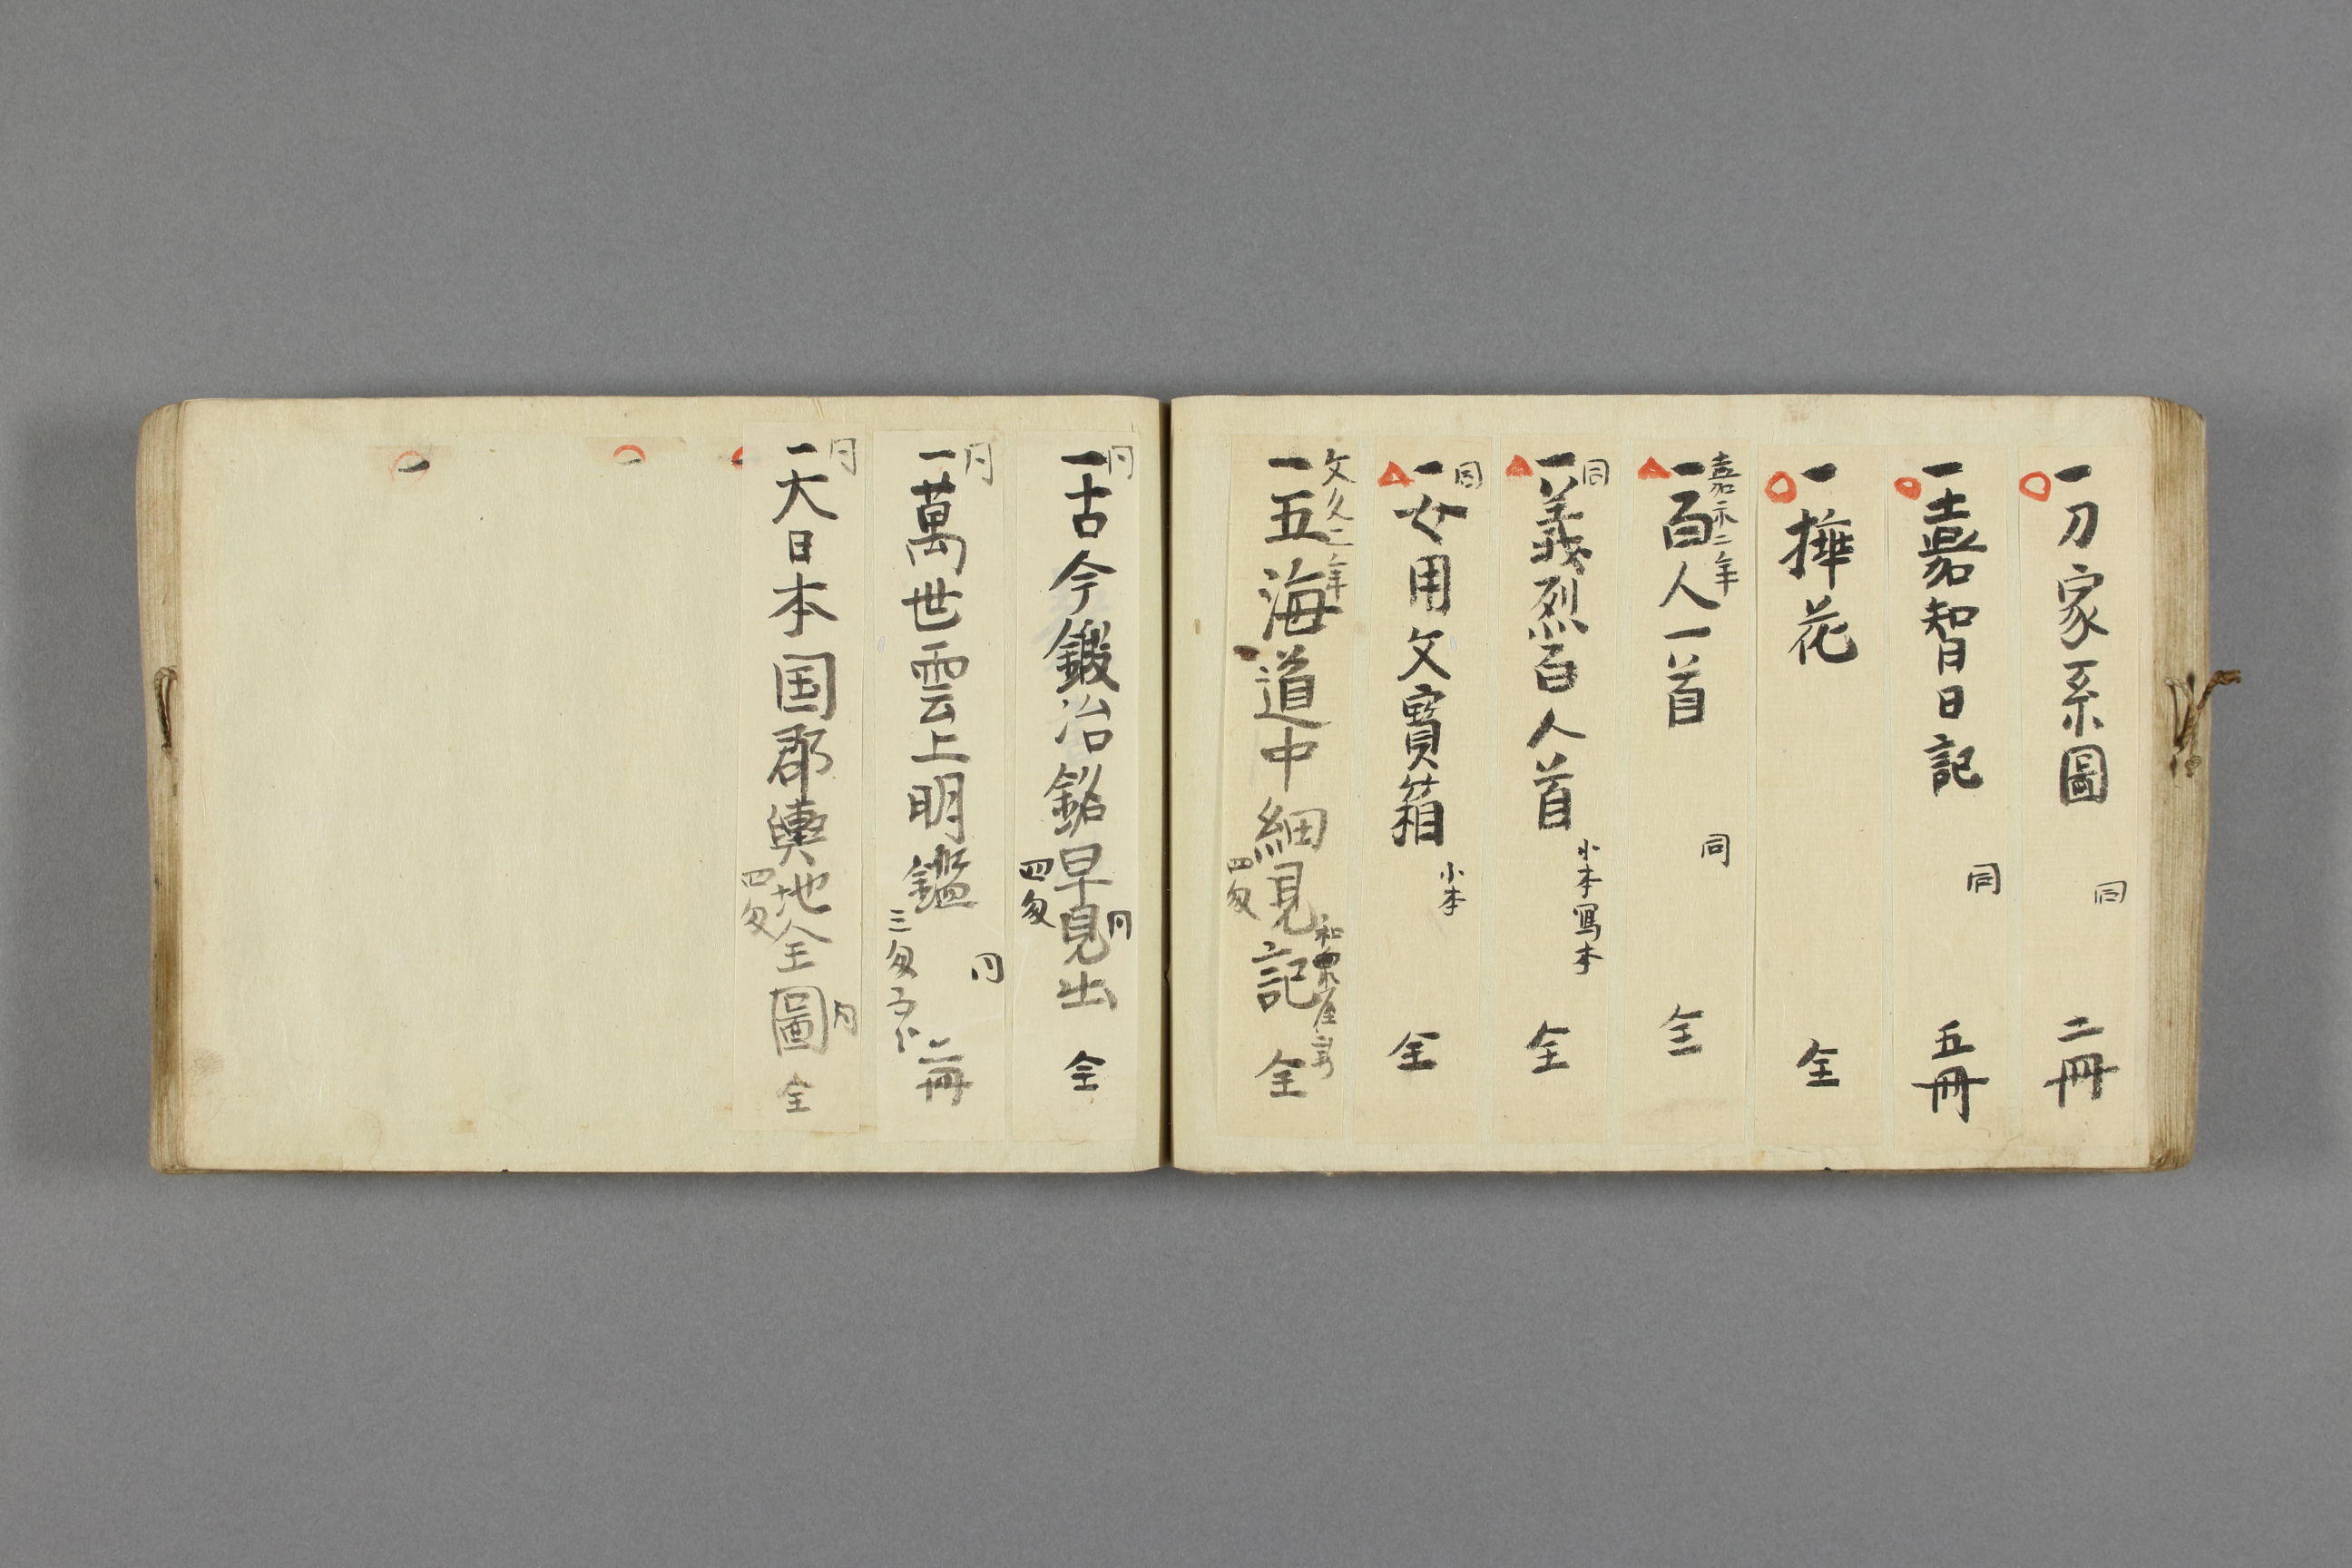 一刀家系圖 同 二冊
一嘉智日記 同 五冊
一擇花 全
嘉永二年
一百人一首 同 全
同
一義烈百人首 小本写本 全
同
一女用文寶箱 小本 全
文久二年
一五海道中細見記 全
四匁
同
一古今鍛冶銘早見出 同 全
四匁
同
一萬世雲上明鑑 同 二冊
三匁五分
同
一大日本国郡輿地全圖 同 全
四匁
一
一